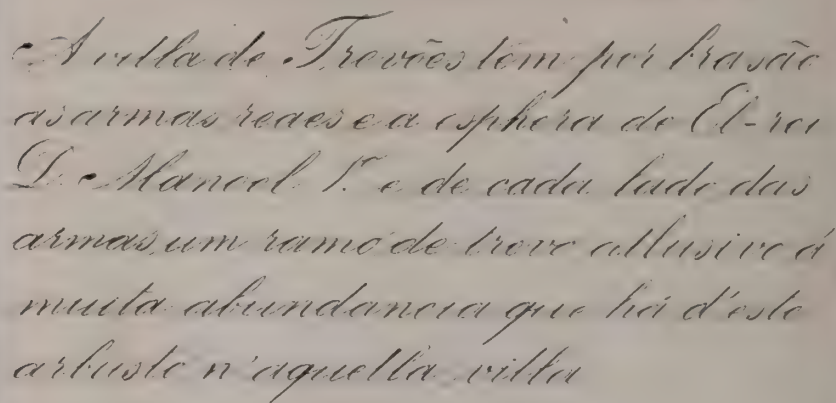 A villa de Trevões tem por brasão
as armas reaes e a esphera de El-rei
D. Manoel 1.º e de cada lado das
armas, um ramo de trevo allusivo á
muita abundancia que há d'este
arbusto n'aquella villa